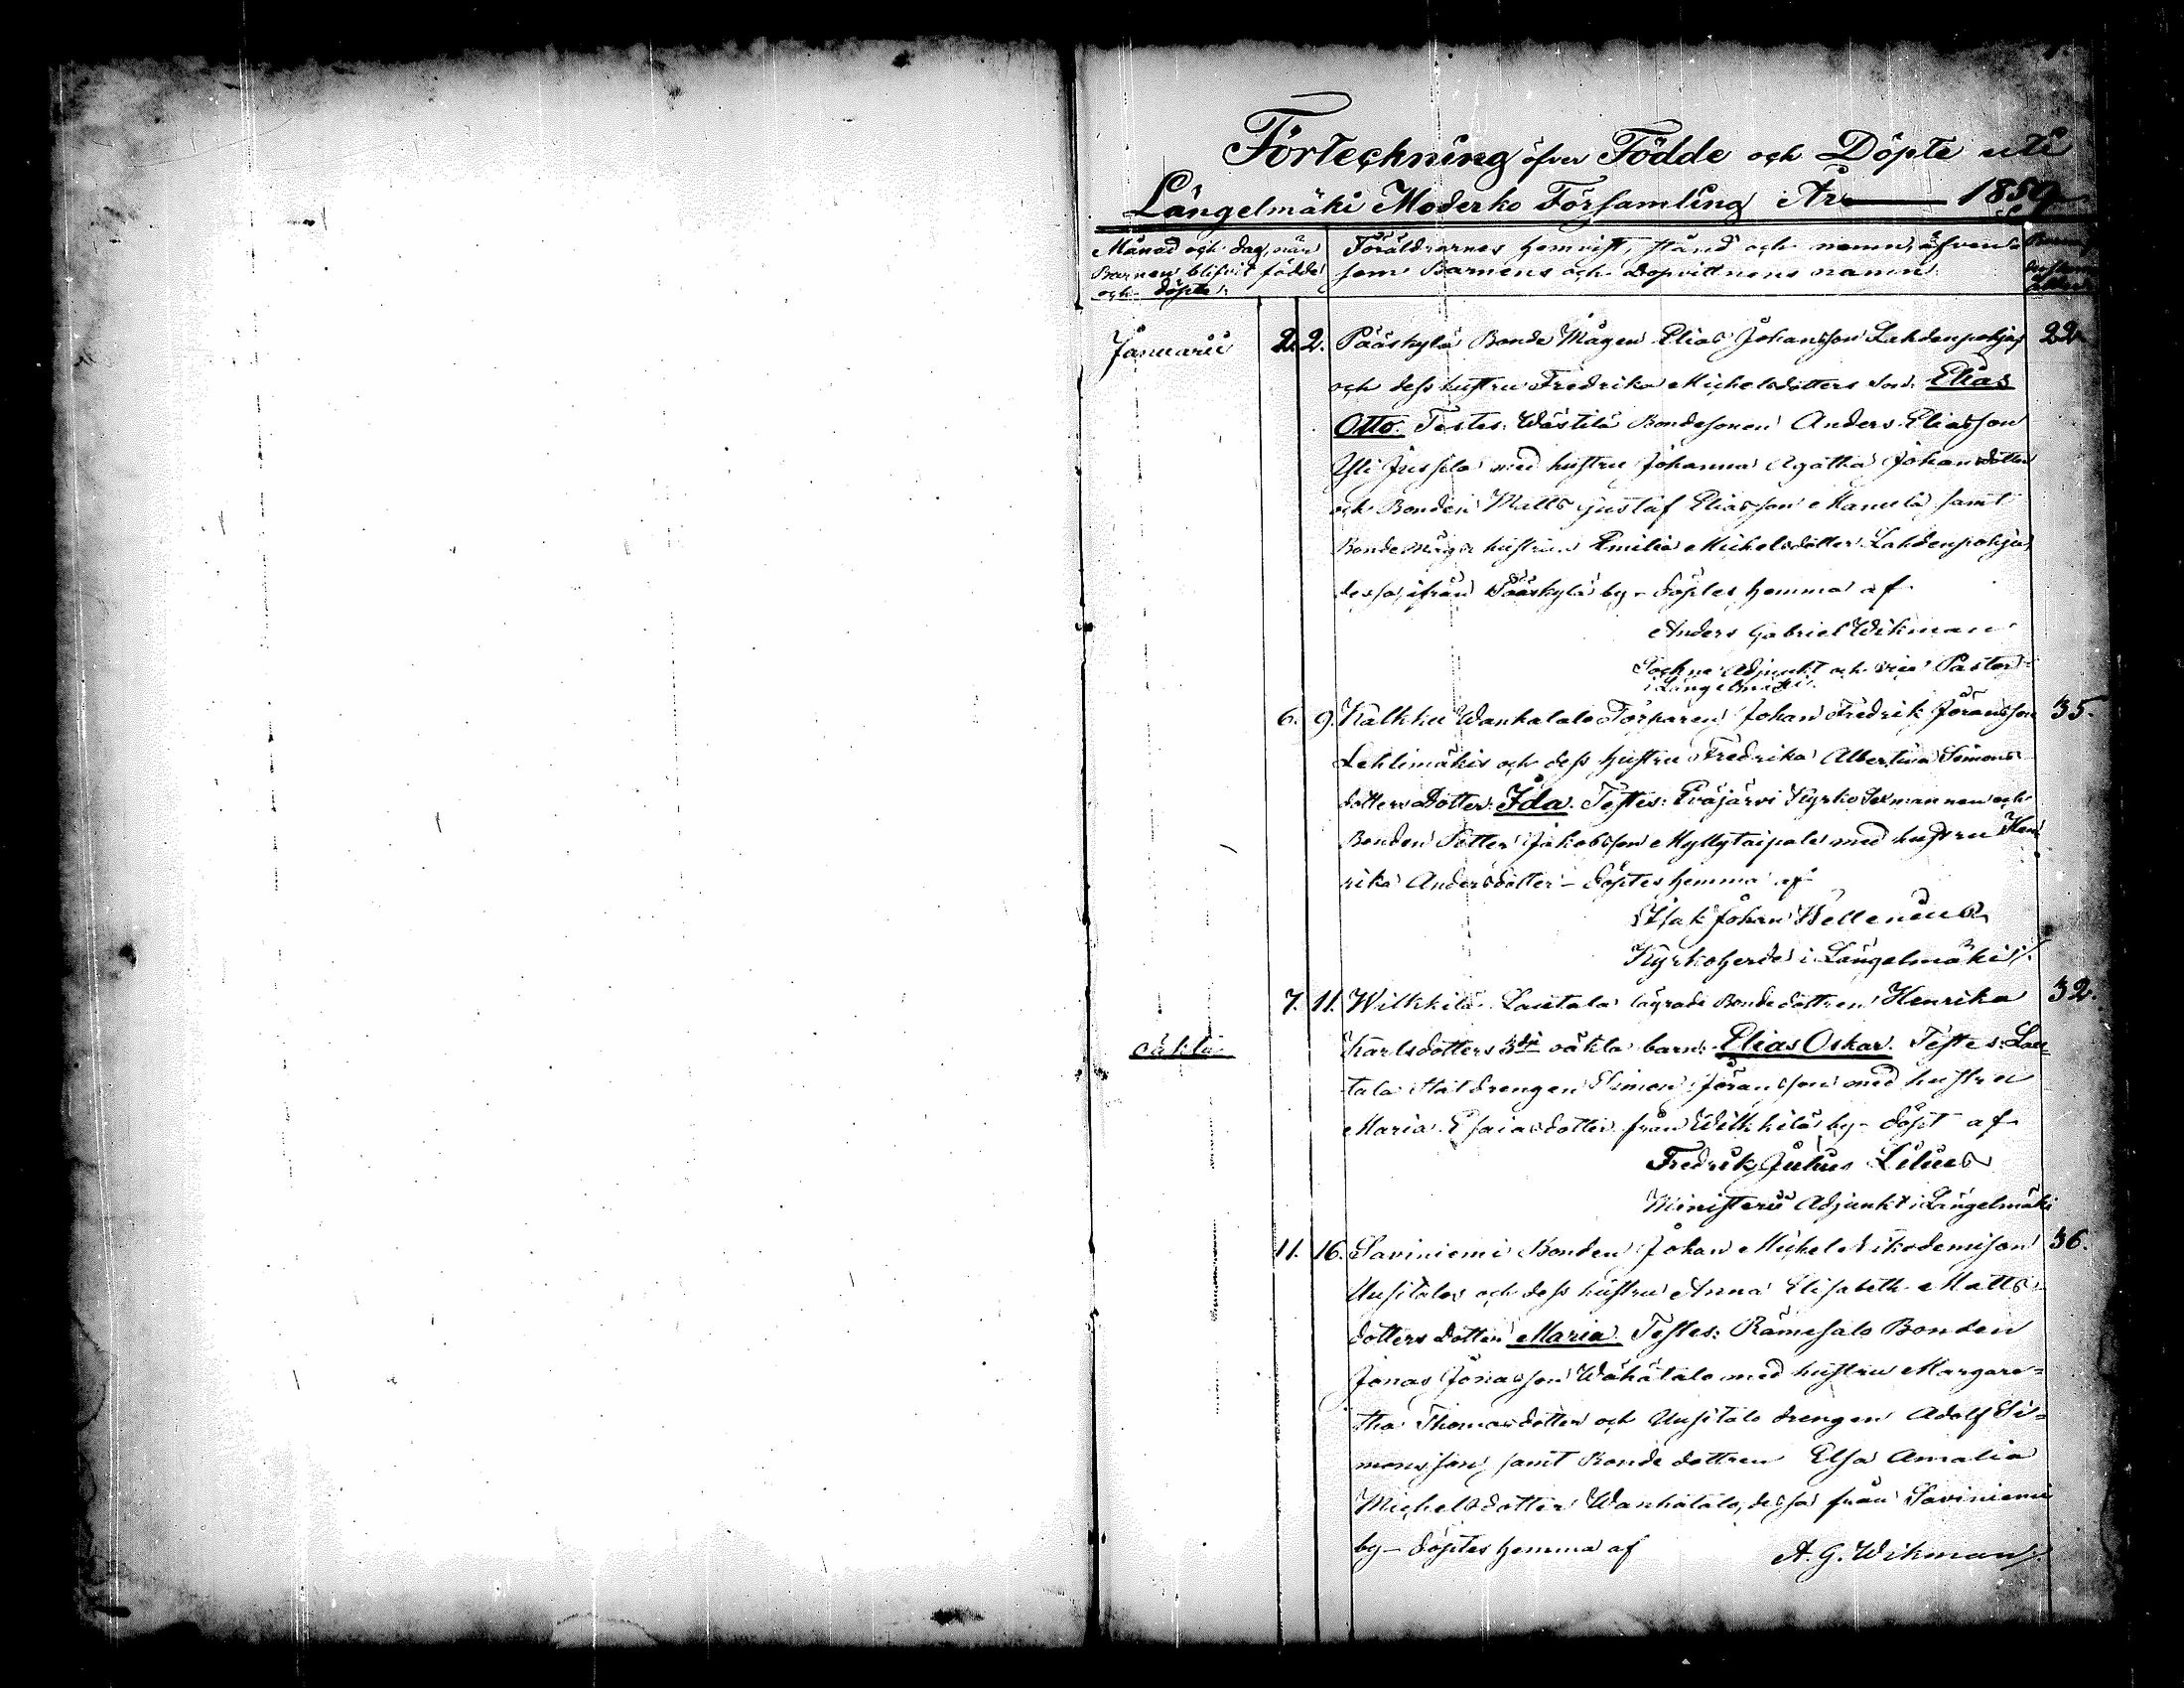 Förteckning öfver Födde och Döpte uti
Längelmäki Moderko Församling År 1859
Månad och dag, när
Barnen blifvit födde
och döpte.
Föräldrarnes hemvist, stånd och namn, äfven
som Barnens och Dopvittnens namn.
Januarii 2. 2. Pääskylä Bonde Mågen Elias Johansson Lahdenpohjas 22
och dess hustru Fredrika Michelsdotters son: Elias
Otto. Testes: Wästilä Bondesonen Anders Eliasson
Yli Jussila med hustru Johanna Agatha Johansdotter
och Bonden Matts Gustaf Eliasson Manula samt
Bondemågs hustrun Emilia Michelsdotter Lahdenpohja,
dessa ifrån Pääskylä by - döptes hemma af
Anders Gabriel Wikman
Sockne Adjunkt och vice Pastor
i Längelmäki.
6. 9. Kalkku Wanhatalo Torparen Johan Fredrik Jöransson 35.
Lehtimäkis och dess hustru Fredrika Albertina Simons
dotters Dotter: Ida. Testes: Eväjärvi Kyrko Sexmannen och
Bonden Petter Jakobsson Myllytaipale med hustru Hen
rika Andersdotter - döptes hemma af
Isak Johan Hellenius
Kyrkoherde i Längelmäki
7. 11. Wilkkilä Lautala lägrade Bondedottren Henrika 32.
oäkta
Karlsdotters 3dje oäkta barn: Elias Oskar. Testes: Lau
tala Statdrengen Simon Jöransson med hustru
Maria Esaiasdotter från Wilkkilä by - döpt af
Fredrik Julius Lilius
Ministerii Adjunkt i Längelmäki
11. 16. Saviniemi Bonden Johan Michel Nikodemisson 36.
Uusitalos och dess hustru Anna Elisabeth Matts
dotters dotter Maria. Testes: Rämesalo Bonden
Jonas Jonasson Wähätalo med hustru Margare=
tha Thomasdotter och Uusitalo drengen Adolf Si=
monsson, samt Bonde dottren Elsa Amalia
Michelsdotter Wanhatalo, dessa från Saviniemi
by - döptes hemma af A. G. Wikman